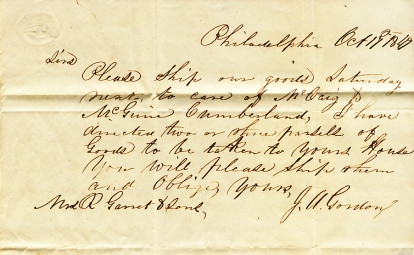 Philadelphia Oct 19th 184
Sirs
Please Ship our goods Saturday
next, to care of McCaig &
McGuire Cumberland, I have
directed two or three parsels of
Goods to be taken to yours House
You will please Ship them
and Oblige, Yours,
Mrs R Garret & Sons, J. A. Gordon